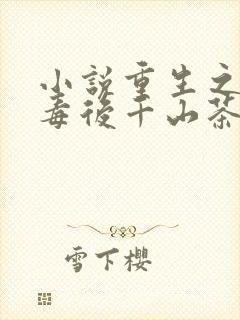 小説重生之
毒後千山茶
雪下櫻